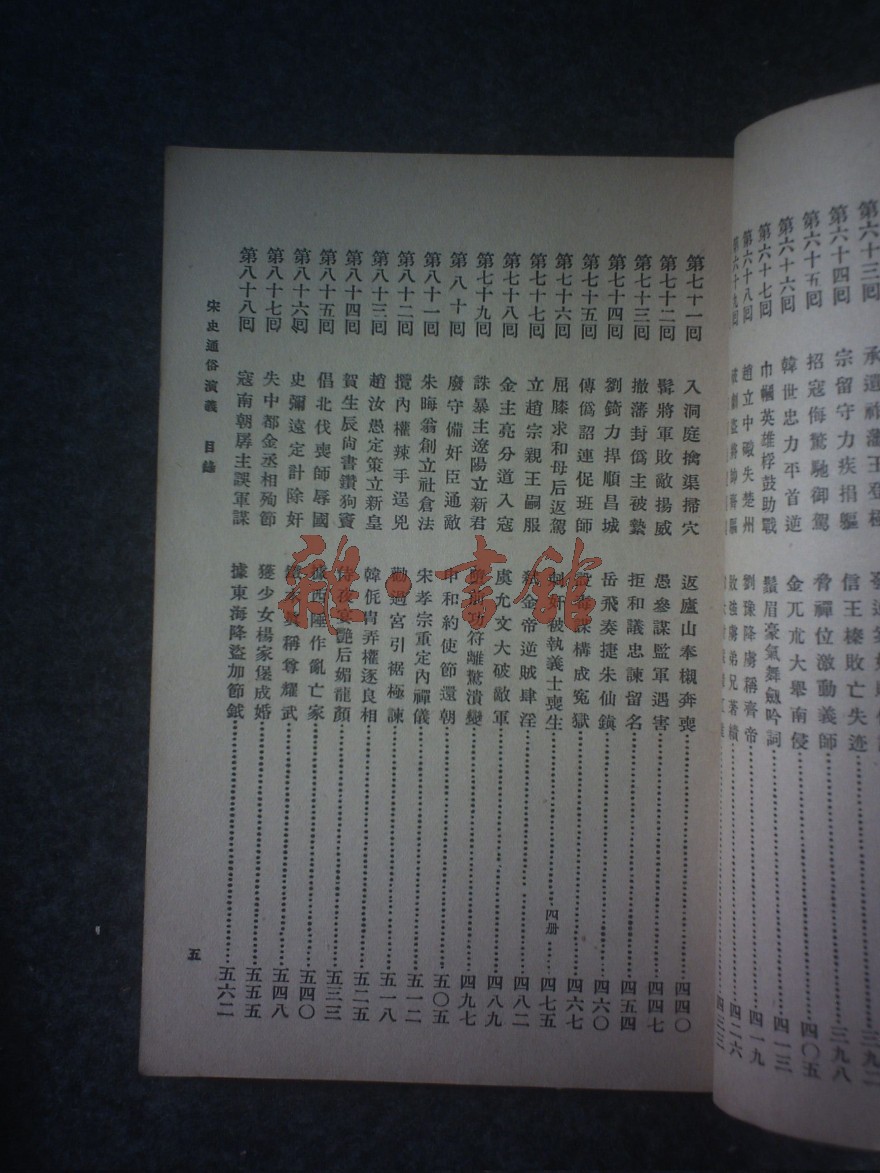 第六十三回
第六十四回 宗留守力疾捐軀 信王榛敗亡失迹 三九八
第六十五回 招寇侮驚馳御駕 脅禪位激動義師 四〇五
第六十六回 韓世忠力平首逆 金兀朮大舉南侵 四一三
第六十七回 巾幗英雄桴鼓助戰 鬚眉豪氣舞劍吟詞 四一九
第六十八回 趙立中礮失楚州 劉豫降虜稱齊帝 四二六
第六十九回 四三三
第七十一回 入洞庭擒渠掃穴 返廬山奉櫬奔喪 四四〇
第七十二回 髯將軍敗敵揚威 愚參謀監軍遇害 四四七
第七十三回 撤藩封僞主被縶 拒和議忠諫留名 四五四
第七十四回 劉錡力捍順昌城 岳飛奏捷朱仙鎮 四六〇
第七十五回 傳僞詔連促班師 設毒謀構成冤獄 四六七
第七十六回 屈膝求和母后返駕 刺奸被執義士喪生 四册 四七五
第七十七回 立趙宗親王嗣服 弑金帝逆賊肆淫 四八二
第七十八回 金主亮分道入寇 虞允文大破敵軍 四八九
第七十九回 誅暴主遼陽立新君 隳前功符離驚潰變 四九七
第八十回 廢守備奸臣通敵 申和約使節還朝 五〇五
第八十一回 朱晦翁創立社倉法 宋孝宗重定內禪儀 五一二
第八十二回 攬內權辣手逞兇 勸過宮引裾極諫 五一八
第八十三回 趙汝愚定策立新皇 韓侂冑弄權逐良相 五二五
第八十四回 賀生辰尚書鑽狗竇 侍夜宴艷后媚龍顏 五三三
第八十五回 倡北伐喪師辱國 據西陲作亂亡家 五四〇
第八十六回 史彌遠定計除奸 稱尊耀武 五四八
第八十七回 失中都金丞相殉節 獲少女楊家堡成婚 五五五
第八十八回 寇南朝孱主誤軍謀 據東海降盜加節鉞 五六二
宋史通俗演義 目錄
五
雜·書館